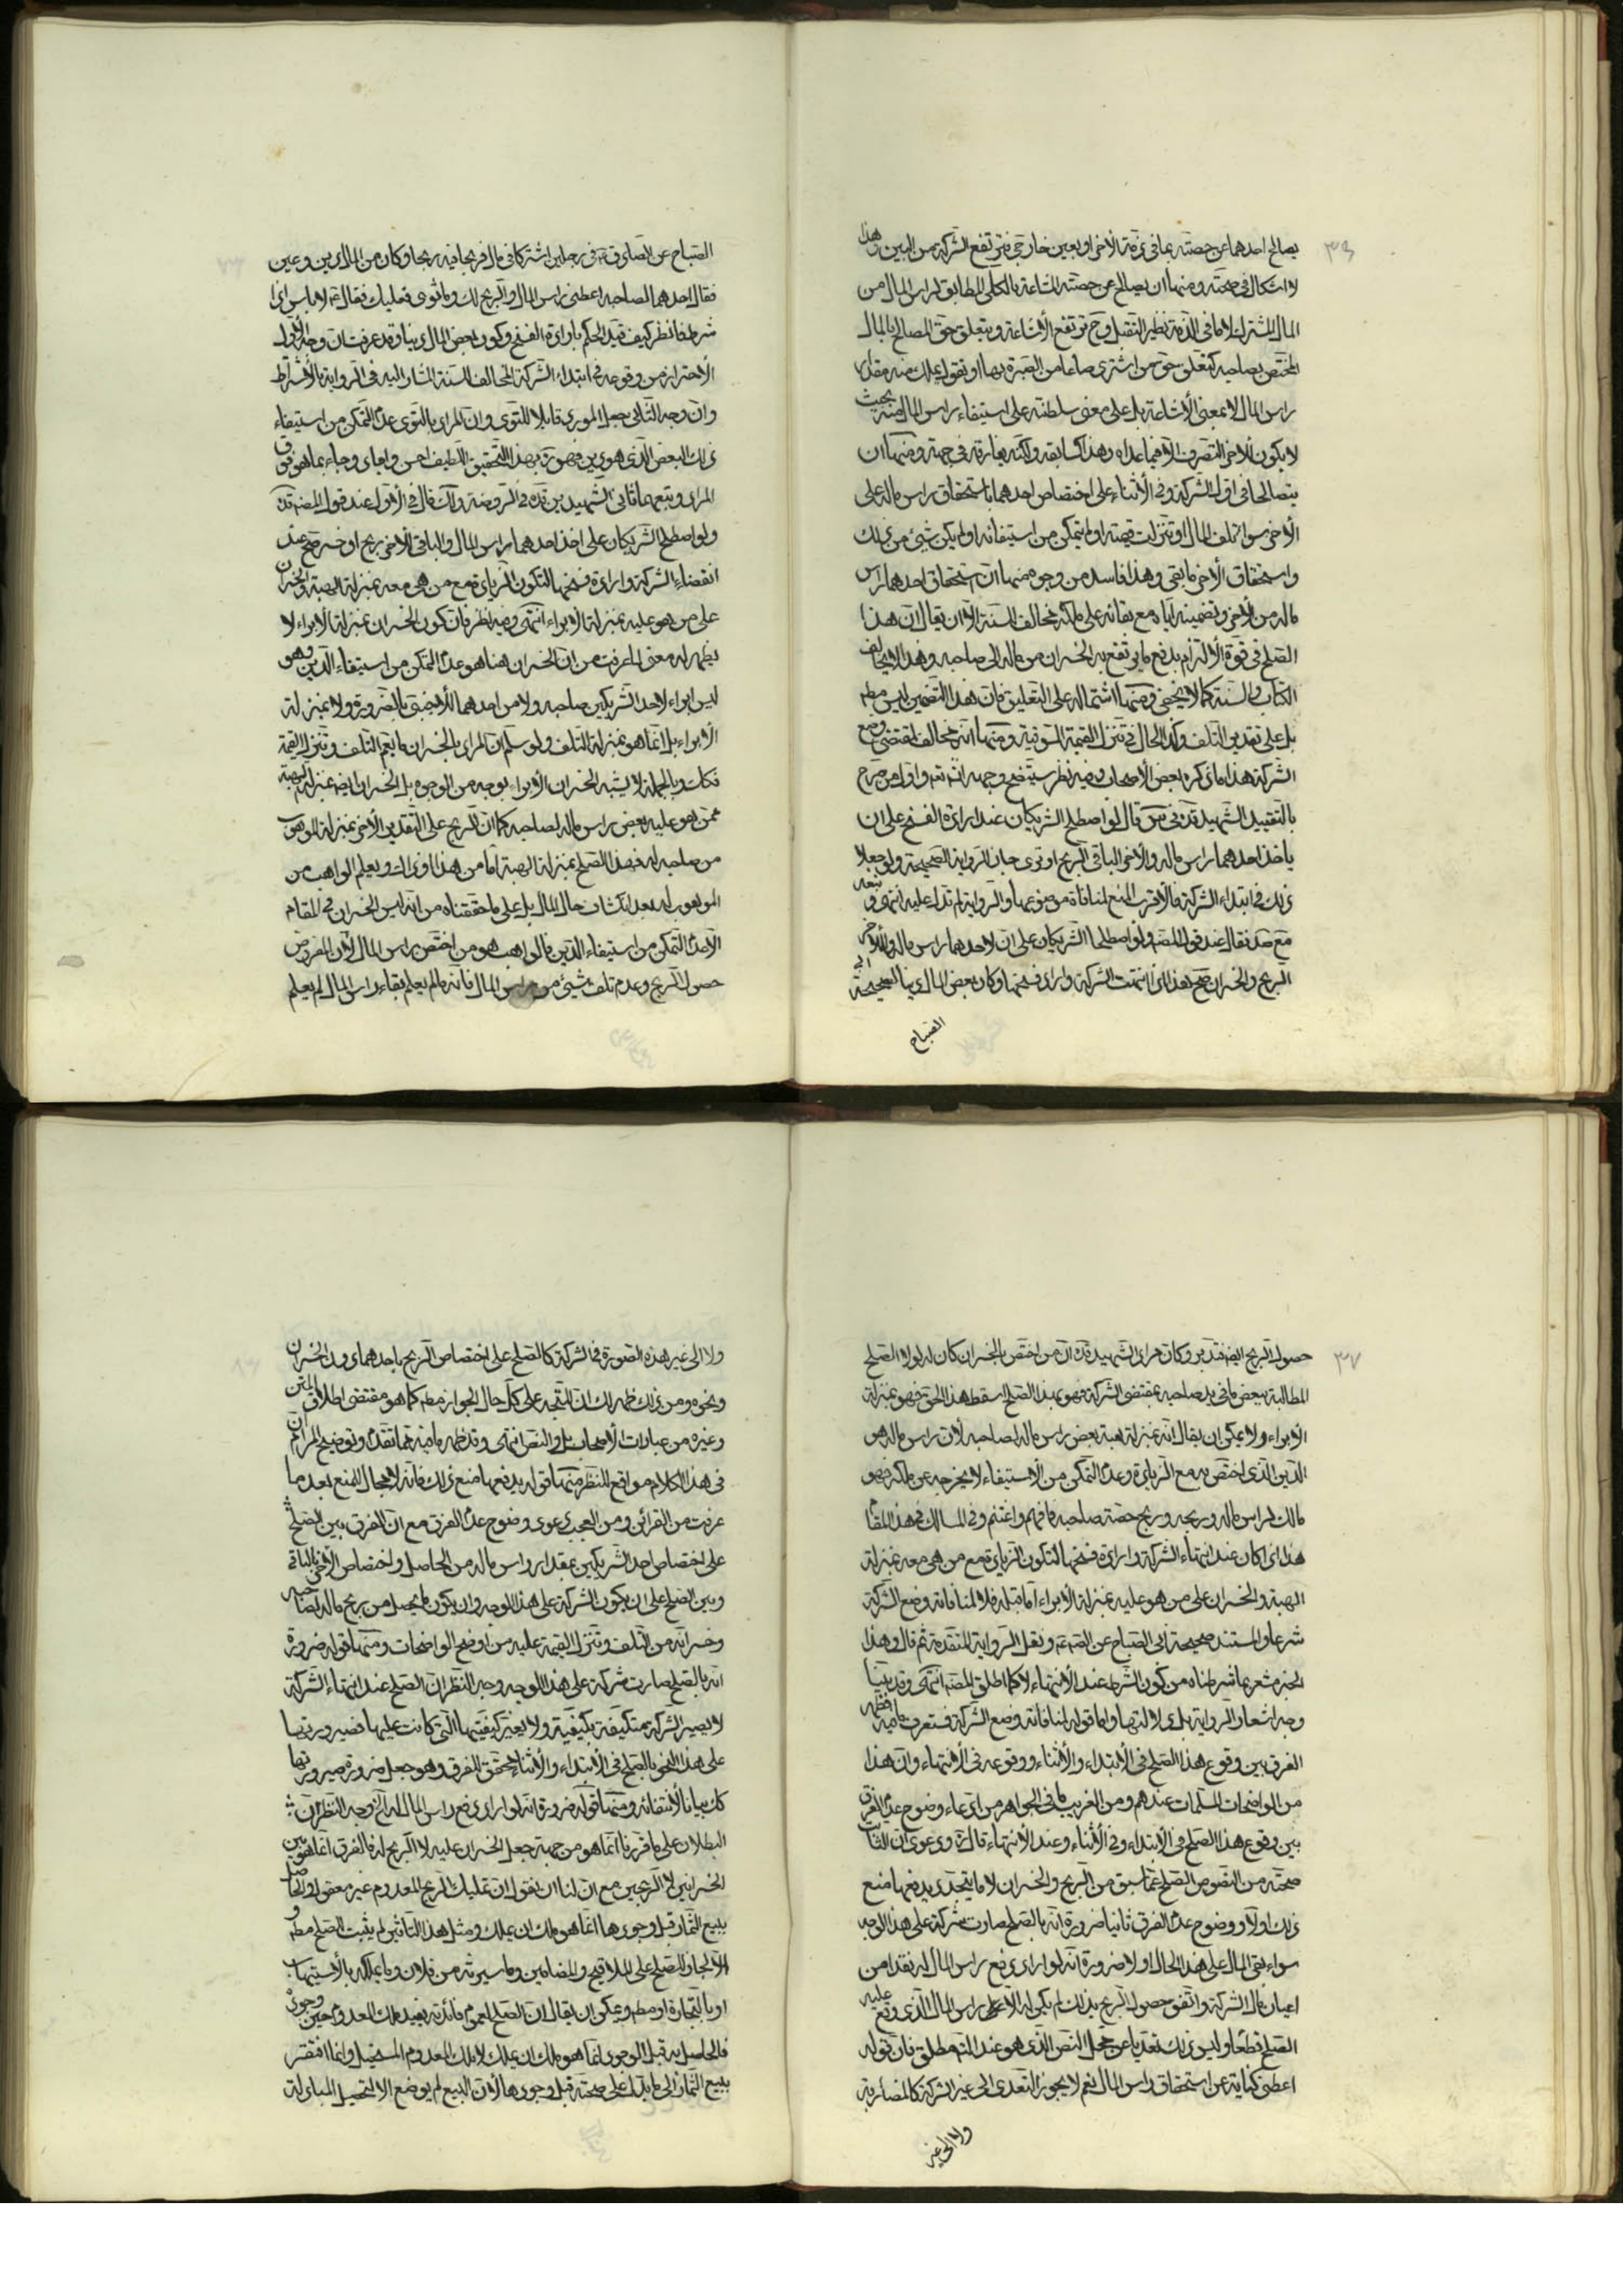 ٣٦
يصالح احدهما عن حصته بما في ذمة الآخر او بعين خارجي فترتفع الشركة من البين وهذا
لا اشكال في صحته ومنها ان يصالح عن حصته المشاعة بالكلي المطابق لراس المال من
المال المشترك لا ما في الذمة نظير التقبل وح ترتفع الاشاعة ويتعلق حق المصالح بالمال
المختص بصاحبه كتعلق حق من اشترى صاعا من الصبرة بها او نقول يملك منه مقدار
راس المال لا بمعنى الاشاعة بل على معنى سلطنته على استيفاء راس المال منه بحيث
لا يكون للآخر التصرف الا فيما عداه وهذا كسابقه ولكنه يفارقه في جهة ومنها ان
يتصالحا في اول الشركة وفي الاثناء على اختصاص احدهما باستحقاق راس ماله على
الآخر سواء تلف المال او تنزلت قيمته او لم يتمكن من استيفائه او لم يكن شيئ من ذلك
واستحقاق الآخر ما بقي وهذا فاسد من وجوه منها ان استحقاق احدهما راس
ماله من الآخر وتضمينه اياه مع بقائه على ملكه مخالف للسنة الا ان يقال ان هذا
الصلح في قوة الالتزام بدفع ما يرتفع به الخسران من ماله الى صاحبه وهذا لا يخالف
الكتاب والسنة كما لا يخفى ومنها اشتماله على التعليق فان هذا التضمين ليس مطم
بل على تقدير التلف وكذا الحال في تنزل القيمة السوقية ومنها انه مخالف لمقتضى وضع
الشركة هذا ما ذكره بعض الاصحاب وفيه نظر سيتضح وجهه انش تعم واول من صرح
بالتقييد الشهيد قدّه في س قال لو اصطلح الشريكان عند ارادة الفسخ على ان
ياخذ احدهما راس ماله والآخر الباقي الربح او توى جاز للرواية الصحيحة ولو جعلا
ذلك في ابتداء الشركة فالاقرب المنع لمنافاته موضوعها والرواية لم تدل عليه انتهى وتبعه
مع صد فقال عند قول المصّ ولو اصطلحا الشريكان على ان لاحدهما راس ماله وللآخر
الربح والخسران صح هذا اذا انتهت الشركة واراد فسخها وكان بعض المال دينا لصحيحة ابي
الصباح
الصباح عن الصادق ع في رجلين اشتركا في مال فربحا فيه ربحا وكان من المال دين وعين
فقال احدهما لصاحبه اعطني راس المال والربح لك وما توى فعليك فقال ع لا باس اذا
شرطا فانظر كيف قيد الحكم بارادة الفسخ وكون بعض المال دينا وقد عرفت ان وجه الاول
الاحتراز من وقوعه في ابتداء الشركة المخالف للسنة المشار اليه في الرواية بالاشتراط
وان وجه الثاني جعل المورد قابلا للتوى وان المراد بالتوى عدم التمكن من استيفاء
ذلك البعض الذي هو دين فهو ره بهذا التحقيق اللطيف احسن واجاد وجاء بما هو فوق
المراد وتبعهما ثاني الشهيدين قده في الروضة ولك قال في الاول عند قول المصّ قدّه
ولو اصطلح الشريكان على اخذ احدهما راس المال والباقي للآخر ربح او خسر صح عند
انقضاء الشركة وارادة فسخها لتكون الزيادة مع من هي معه بمنزلة الهبة والخسران
على من هو عليه بمنزلة الابراء انتهى وفيه نظر فان كون الخسران بمنزلة الابراء لا
يظهر له معنى لما عرفت من ان الخسران هنا هو عدم التمكن من استيفاء الدين وهو
ليس ابراء لاحد الشريكين صاحبه ولا من احدهما للاجنبي بالضرورة ولا بمنزلة
الابراء بل انما هو بمنزلة التلف ولو سلم ان المراد بالخسران ما يعم التلف وتنزل القيمة
فكك وبالجملة لا يشبه الخسران الابراء بوجه من الوجوه بل الخسران ايض بمنزلة الهبة
ممن هو عليه بعض راس ماله لصاحبه كما ان الربح على التقدير الآخر بمنزلة الموهوب
من صاحبه له فهذا الصلح بمنزلة الهبة اما من هذا او ذاك ويعلم الواهب من
الموهوب له بعد انكشاف حال المال بل على ما حققناه من انه ليس الخسران في المقام
الا عدم التمكن من استيفاء الدين فالواهب هو من اختص براس المال لان المفروض
حصول الربح وعدم تلف شيئ من راس المال فانه ما لم يعلم بقاء راس المال لم يعلم
٣٧
حصول الربح ايض فتدبر وكان مراد الشهيد قدّه ان من اختص بالخسران كان له لولا الصلح
المطالبة ببعض ما في يد صاحبه بمقتضى الشركة فهو بهذا الصلح اسقط هذا الحق فهو بمنزلة
الابراء ولا يمكن ان يقال انه بمنزلة هبة بعض راس ماله لصاحبه لان راس ماله هو
الدين الذي اختص به مع الزيادة وعدم التمكن من الاستيفاء لا يخرجه عن ملكه فهو
مالك لراس ماله وربحه وربح حصة صاحبه فافهم واغتنم وفي المسالك في هذا المقام
هذا اذا كان عند انتهاء الشركة وارادة فسخها لتكون الزيادة مع من هي معه بمنزلة
الهبة والخسران على من هو عليه بمنزلة الابراء اما قبله فلا لمنافاته وضع الشركة
شرعا والمستند صحيحة ابي الصباح عن الصّ ع ونقل الرواية المتقدمة ثم قال وهذا
الخبر مشعر بما شرطناه من كون الشرط عند الانتهاء لا كما اطلق المصّ انتهى وقد بينا
وجه اشعار الرواية بل دلالتها واما قوله لمنافاته وضع الشركة فستعرف ما فيه فظهر
الفرق بين وقوع هذا الصلح في الابتداء والاثناء ووقوعه في الانتهاء وان هذا
من الواضحات المسلمات عندهم ومن الغريب ما في الجواهر من ادعاء وضوح عدم الفرق
بين وقوع هذا الصلح في الابتداء وفي الاثناء وعند الانتهاء قال ره ودعوى ان الثابت
صحته من النصوص الصلح عما سبق من الربح والخسران لا ما يتجدد يدفعها منع
ذلك اولا ووضوح عدم الفرق ثانيا ضرورة انه بالصلح صارت شركة على هذا الوجه
سواء بقي المال على هذا الحال او لا ضرورة انه لو اراد دفع راس المال له نقدا من
اعيان مال الشركة واتفق حصول الربح بذلك لم يكن له الا على راس المال الذي وقع عليه
الصلح قطعا وليس ذلك تعديا عن محل النص الذي هو عند التم مطلق فان قوله
اعطني كناية عن استحقاق راس المال نعم لا يجوز التعدي الى غير الشركة كالمضاربة
ولا الى غير
ولا الى غير هذه الصورة في الشركة كالصلح على اختصاص الربح باحدهما دون الخسران
ونحوه ومن ذلك ظهر لك ان المتجه على كل حال الجواز مطم كما هو مقتضى اطلاق المتن
وغيره من عبارات الاصحاب بل والنص انتهى وقد ظهر ما فيه مما تقدم وتوضيح المرام ان
في هذا الكلام مواقع للنظر منها قوله يدفعها منع ذلك فانه لا مجال للمنع بعد ما
عرفت من القرائن ومن العجب دعوى وضوح عدم الفرق مع ان الفرق بين الصلح
على اختصاص احد الشريكين بمقدار راس ماله من الحاصل واختصاص الآخر بالباقي
وبين الصلح على ان يكون الشركة على هذا الوجه وان يكون ما يحصل من ربح ماله لصاحبه
وخسرانه من التلف وتنزل القيمة عليه من اوضح الواضحات ومنها قوله ضرورة
انه بالصلح صارت شركة على هذا الوجه وجه النظر ان الصلح عند انتهاء الشركة
لا يصير الشركة متكيفة بكيفية ولا يغير كيفيتها التي كانت عليها فصيرورتها
على هذا النحو بالصلح في الابتداء والاثناء يحقق الفرق وهو جعل ضرورة صيرورتها
كك بيانا لانتفائه ومنها قوله ضرورة انه لو اراد دفع راس المال له الخ وجه النظر ان
البطلان على ما قررنا انما هو من جهة جعل الخسران عليه لا الربح له فالفرق انما هو بين
الخسرانين لا الربحين مع ان لنا ان نقول ان تمليك الربح المعدوم غير معقول والحاصل
ببيع الثمار قبل وجودها انما هو ملك ان يملك ومثل هذا التاثير لم يثبت للصلح مطم و
الا لجاز الصلح على الملاقيح والمضامين وما سيرثه من فلان وما يملكه بالاستيهاب
او بالتجارة او مطم ويمكن ان يقال ان الصلح اعم فائدته يفيد ملك المعدوم حين وجوده
فالحاصل به قبل الوجود انما هو ملك ان يملك لا ملك المعدوم المستحيل وانما افتقر
بيع الثمار الى ما يدل على صحته قبل وجودها لان البيع لم يوضع الا لتحصيل المبادلة